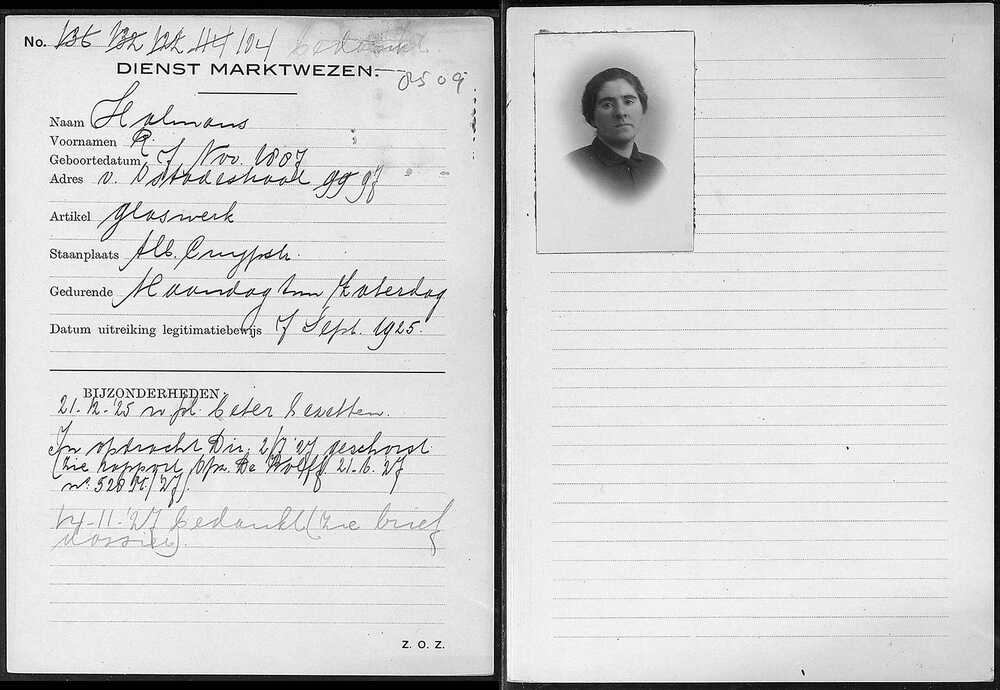 No. 136 132 122 114 104 Bedankt.
DIENST MARKTWEZEN.
Naam Halmans
Voornamen R.
Geboortedatum 7 Nov. 1887
Adres v. Ostadestraat 99 97
Artikel glaswerk
Staanplaats Alb. Cuypstr.
Gedurende Maandag t/m Zaterdag
Datum uitreiking legitimatiebewijs 7 Sept. 1925.
BIJZONDERHEDEN.
21-12-'25 beter bezetten.
In opdracht Dir. 2/7 '27 geschorst
(zie rapport Opz. De Wolff 21-6-'27
no. 528 /'27).
14-11-'27 bedankt (zie brief
dossier).
Z. O. Z.